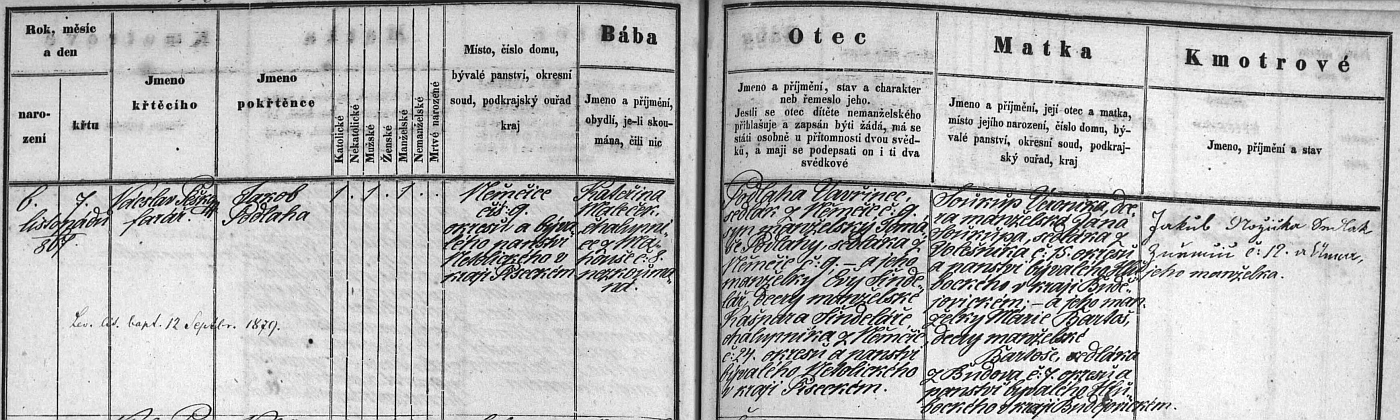 Rok, měsíc
a den
naro-
zení
křtu
Jmeno
křtěcího
Jmeno
pokřtěnce
Katolické
Nekatolické
Mužské
Ženské
Manželské
Nemanželské
Mrtvě narozené
Místo, číslo domu,
bývalé panství, okresní
soud, podkrajský ouřad
kraj
Bába
Jmeno a příjmění,
obydlí, je-li skou-
mána, čili nic
6. 7.
listopadu
867
farář
Jakob
Podlaha
1. 1. 1.
Němčice
čís. 9.
okresu a býva-
lého panství
Netolického v
kraji Píseckém
Kateřina
chalupni-
ce z
č. 8.
Lev. lit. bapt. 12 Septbr. 1879.
Otec
Jmeno a příjmění, stav a charakter
neb řemeslo jeho.
Jestli se otec dítěte nemanželského
přihlašuje a zapsán býti žádá, má se
státi osobně u přítomnosti dvou svěd-
ků, a mají se podepsati on i ti dva
svědkové
Podlaha Vavřinec,
sedlák z Němčic č. 9.
syn manželský
Podlahy, sedláka z
Němčic č. 9. – a jeho
manželky Evy Šinde-
lář, dcery manželské
Kašpara Šindeláře,
chalupníka z Němčic
č. 24. okresu a panství
bývalého Netolického
v kraji Píseckém.
Matka
Jmeno a příjmění, její otec a matka,
místo jejího narození, číslo domu, bý-
valé panství, okresní soud, podkraj-
ský ouřad, kraj
Soukup Veronika, dce-
ra manželská Jana
Soukupa, sedláka z
č. 15. okresu
a panství bývalého Hlu-
bockého v kraji Budě-
jovickém; – a jeho man-
želky Marie Bartoš,
dcery manželské
Bartoše, sedláka
z Búdova, č. 7. okresu a
panství bývalého Hlu-
bockého v kraji Budějovickém.
Kmotrové
Jmeno, příjmění a stav
Jakub Růžička Sedlák
č. 12. a
jeho manželka.